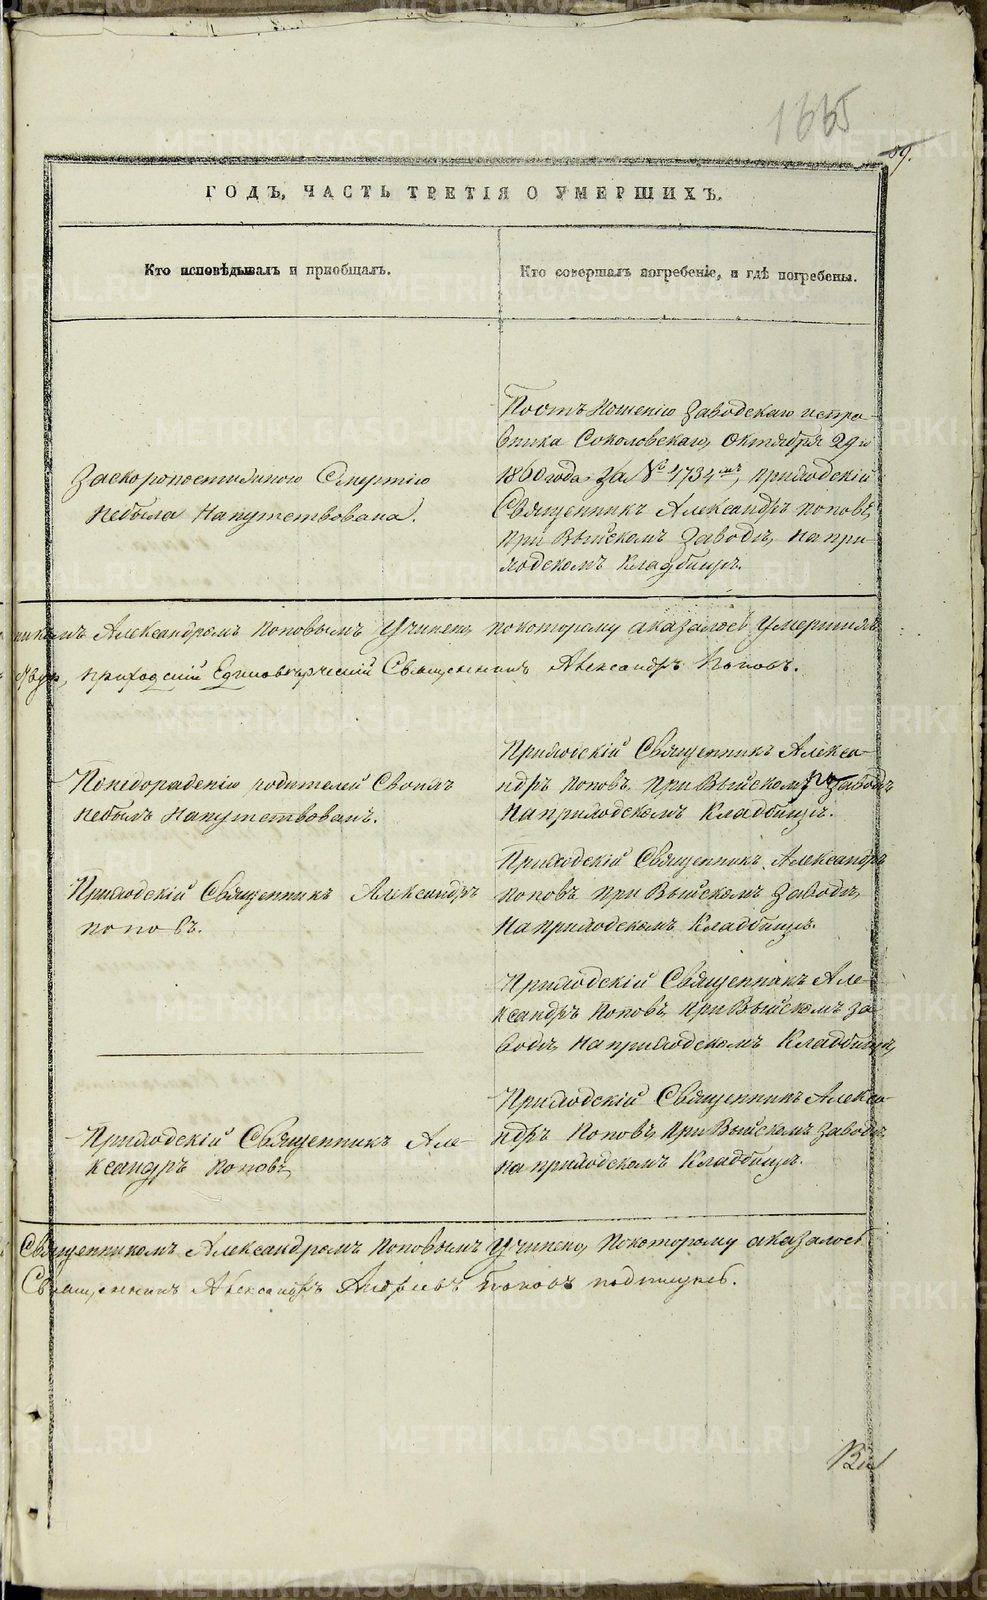 1665
59.
ГОДЪ, ЧАСТЬ ТРЕТІЯ О УМЕРШИХЪ.
Кто исповѣдывалъ и пріобщалъ.
Кто совершалъ погребеніе, и гдѣ погребены.
Заскоропостижною Смертію
Небыла Напутствована.
Постъ Ношенію Заводскаго испра-
вника Соколовскаго, Октября 29го
1860 года за № 4734мъ, приходскій
Священникъ Александръ поповъ,
при Выйскомъ Заводѣ, на при-
ходскомъ Кладбищѣ.
Александромъ Поповымъ Учинено, покоторому аказалось Умершихъ
приходскій Единовѣрческій Священникъ Александръ Поповъ.
Понедораденію родителей Своихъ
Небылъ Напутствованъ.
Приходскій Священникъ Алекса-
ндръ Поповъ, При Выйскомъ Заводѣ
На приходскомъ Кладбищѣ.
Приходскій Священникъ Александръ
поповъ.
Приходскій Священникъ Александръ
Поповъ при Выйскомъ Заводѣ,
На приходскомъ Кладбищѣ.
Приходскій Священникъ Але-
ксандръ Поповъ, При Выйскомъ За-
водѣ, На приходскомъ Кладбищѣ,
Приходскій Священникъ Але-
ксандръ Поповъ,
Приходскій Священникъ Алекса-
ндръ Поповъ, При Выйскомъ Заводѣ,
на приходскомъ Кладбищѣ.
Священникомъ Александромъ Поповымъ Учинено, Покоторому аказалось
Священникъ Александръ Андреевъ Поповъ подпишусь.